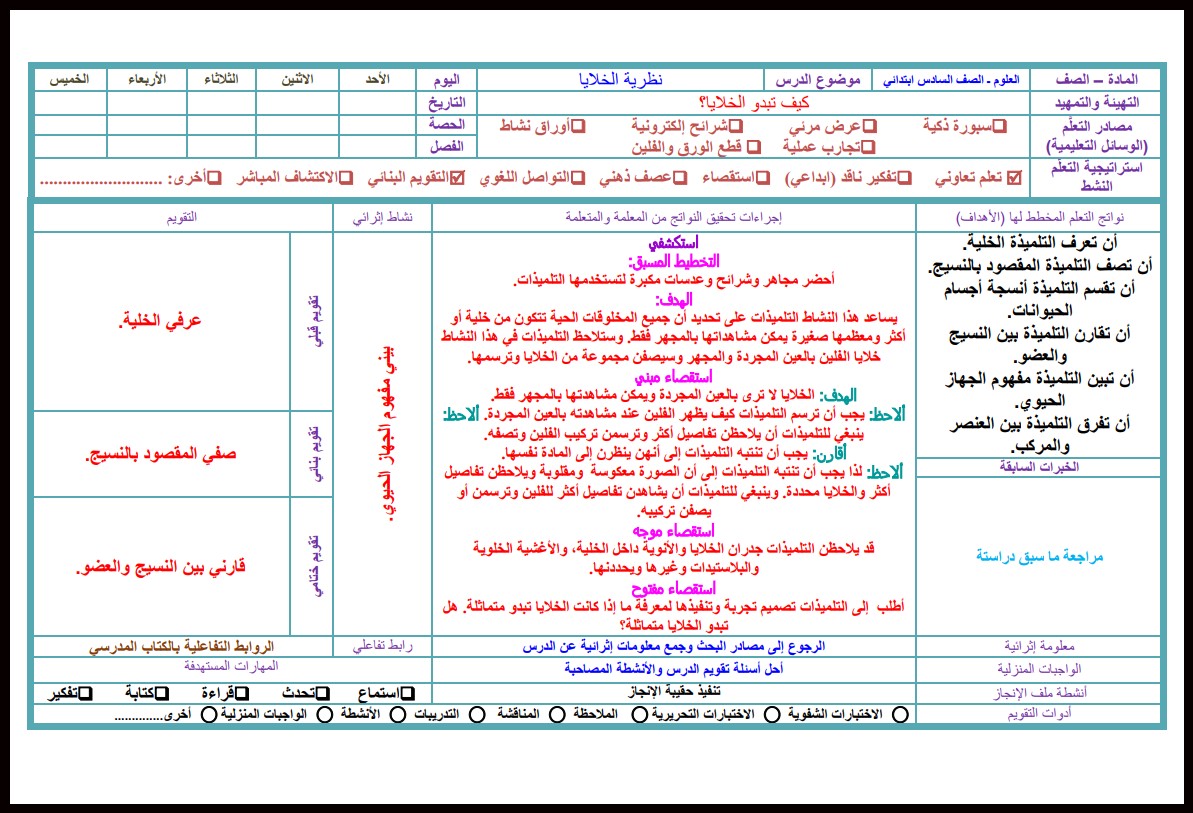 المادة – الصف العلوم - الصف السادس ابتدائي موضوع الدرس نظرية الخلايا اليوم الأحد الاثنين الثلاثاء الأربعاء الخميس
التهيئة والتمهيد كيف تبدو الخلايا؟ التاريخ
مصادر التعلّم (الوسائل التعليمية) ❑سبورة ذكية ❑عرض مرئي ❑شرائح إلكترونية ❑أوراق نشاط الحصة
❑تجارب عملية ❑ قطع الورق والفلين الفصل
استراتيجية التعلّم النشط ☑ تعلم تعاوني ❑تفكير ناقد (ابداعي) ❑استقصاء ❑عصف ذهني ❑التواصل اللغوي ☑التقويم البنائي ❑الاكتشاف المباشر ❑أخرى: .........................
نواتج التعلم المخطط لها (الأهداف) إجراءات تحقيق النواتج من المعلمة والمتعلمة نشاط إثرائي التقويم
أن تعرف التلميذة الخلية.
أن تصف التلميذة المقصود بالنسيج.
أن تقسم التلميذة أنسجة أجسام
الحيوانات.
أن تقارن التلميذة بين النسيج
والعضو.
أن تبين التلميذة مفهوم الجهاز
الحيوي.
أن تفرق التلميذة بين العنصر
والمركب.
الخبرات السابقة
مراجعة ما سبق دراستة
استكشفي
التخطيط المسبق:
أحضر مجاهر وشرائح وعدسات مكبرة لتستخدمها التلميذات.
الهدف:
يساعد هذا النشاط التلميذات على تحديد أن جميع المخلوقات الحية تتكون من خلية أو
أكثر ومعظمها صغيرة يمكن مشاهداتها بالمجهر فقط. وستلاحظ التلميذات في هذا النشاط
خلايا الفلين بالعين المجردة والمجهر وسيصفن مجموعة من الخلايا وترسمها.
استقصاء مبني
الهدف: الخلايا لا ترى بالعين المجردة ويمكن مشاهدتها بالمجهر فقط.
ألاحظ: يجب أن ترسم التلميذات كيف يظهر الفلين عند مشاهدته بالعين المجردة. ألاحظ:
ينبغي للتلميذات أن يلاحظن تفاصيل أكثر وترسمن تركيب الفلين وتصفه.
أقارن: يجب أن تنتبه التلميذات إلى أنهن ينظرن إلى المادة نفسها.
ألاحظ: لذا يجب أن تنتبه التلميذات إلى أن الصورة معكوسة ومقلوبة ويلاحظن تفاصيل
أكثر والخلايا محددة. وينبغي للتلميذات أن يشاهدن تفاصيل أكثر للفلين وترسمن أو
يصفن تركيبه.
استقصاء موجه
قد يلاحظن التلميذات جدران الخلايا والأنوية داخل الخلية، والأغشية الخلوية
والبلاستيدات وغيرها ويحددنها.
استقصاء مفتوح
أطلب إلى التلميذات تصميم تجربة وتنفيذها لمعرفة ما إذا كانت الخلايا تبدو متماثلة. هل
تبدو الخلايا متماثلة؟
بيني مفهوم الجهاز الحيوي.
تقويم قبلي عرفي الخلية.
تقويم بنائي صفي المقصود بالنسيج.
تقويم ختامي قارني بين النسيج والعضو.
معلومة إثرائية الرجوع إلى مصادر البحث وجمع معلومات إثرائية عن الدرس رابط تفاعلي الروابط التفاعلية بالكتاب المدرسي
الواجبات المنزلية أحل أسئلة تقويم الدرس والأنشطة المصاحبة المهارات المستهدفة
أنشطة ملف الإنجاز تنفيذ حقيبة الإنجاز ❑استماع ❑تحدث ❑قراءة ❑كتابة ❑تفكير
أدوات التقويم ○ الاختبارات الشفوية ○ الاختبارات التحريرية ○ الملاحظة ○ المناقشة ○ التدريبات ○ الأنشطة ○ الواجبات المنزلية ○ أخرى..............